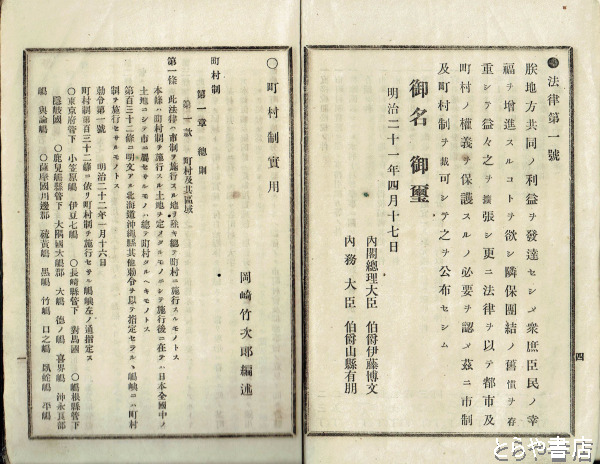 法律第一號
朕地方共同ノ利益ヲ發達セシメ衆庶臣民ノ幸
福ヲ增進スルコトヲ欲シ隣保團結ノ舊慣ヲ存
重シテ益々之ヲ擴張シ更ニ法律ヲ以テ都市及
町村ノ權義ヲ保護スルノ必要ヲ認メ茲ニ市制
及町村制ヲ裁可シテ之ヲ公布セシム
御名 御璽
明治二十一年四月十七日
內閣總理大臣 伯爵伊藤博文
內務大臣 伯爵山縣有朋
四
〇町村制實用
岡崎竹次郎編述
町村制
第一章 總則
第一款 町村及其區域
第一條 此法律ハ市制ヲ施行スル地ヲ除キ總テ町村ニ施行スルモノトス
本條ハ町村制ヲ施行スル土地ヲ定メタルモノニシテ施行後ニ在テハ日本全國中ノ
土地ニシテ市ニ屬セサルモノハ總テ町村タルヘキモノトス
第百三十二條ニ明文アル北海道沖繩縣其他勅令ヲ以テ指定セラルヽ嶋嶼ニハ町村
制ヲ施行セサルモノトス
勅令第一號 明治二十二年一月十六日
町村制第百三十二條ニ依リ町村制ヲ施行セサル嶋嶼左ノ通指定ス
〇東京府管下 小笠原嶋 伊豆七嶋 〇長崎縣管下 對馬國 〇嶋根縣管下
隱岐國 〇鹿兒嶋縣管下 大隅國大嶋郡 大嶋 德ノ嶋 喜界嶋 沖永良部
嶋 與論嶋 〇薩摩國川邊郡 硫黃嶋 黑嶋 竹嶋 口之嶋 臥蛇嶋 平嶋
とらや書店